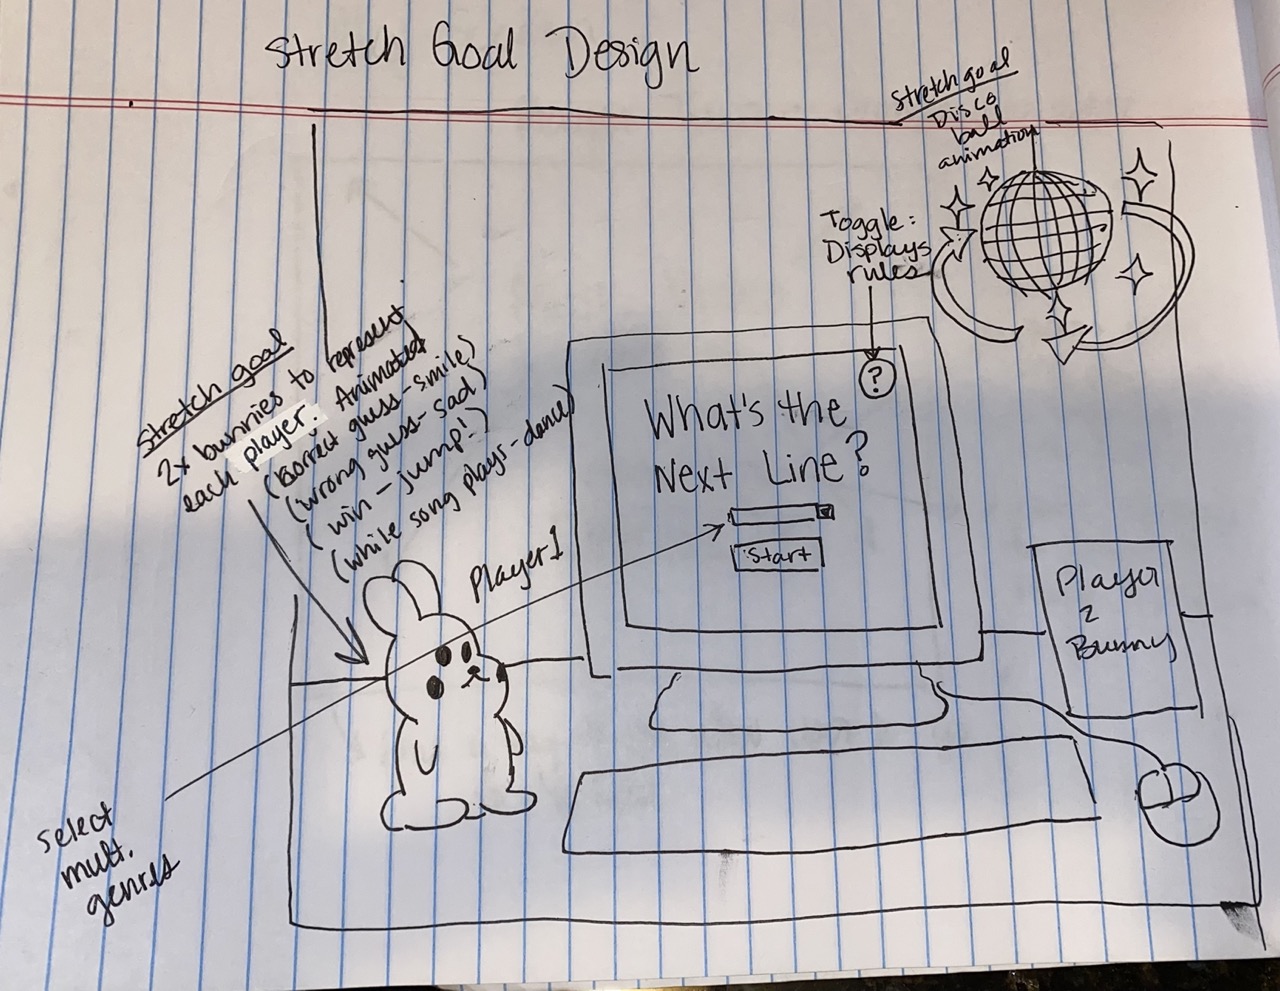 Stretch Goal Design
Stretch goal
Disco
ball
animation
Toggle:
Displays
rules
Stretch goal
2x bunnies to represent
each player. Animated
(Correct guess - smile)
(wrong guess - sad)
(win - jump!)
(while song plays - dance)
Player 1
?
What's the
Next Line?
Start
Player
2
Bunny
Select
mult.
genres